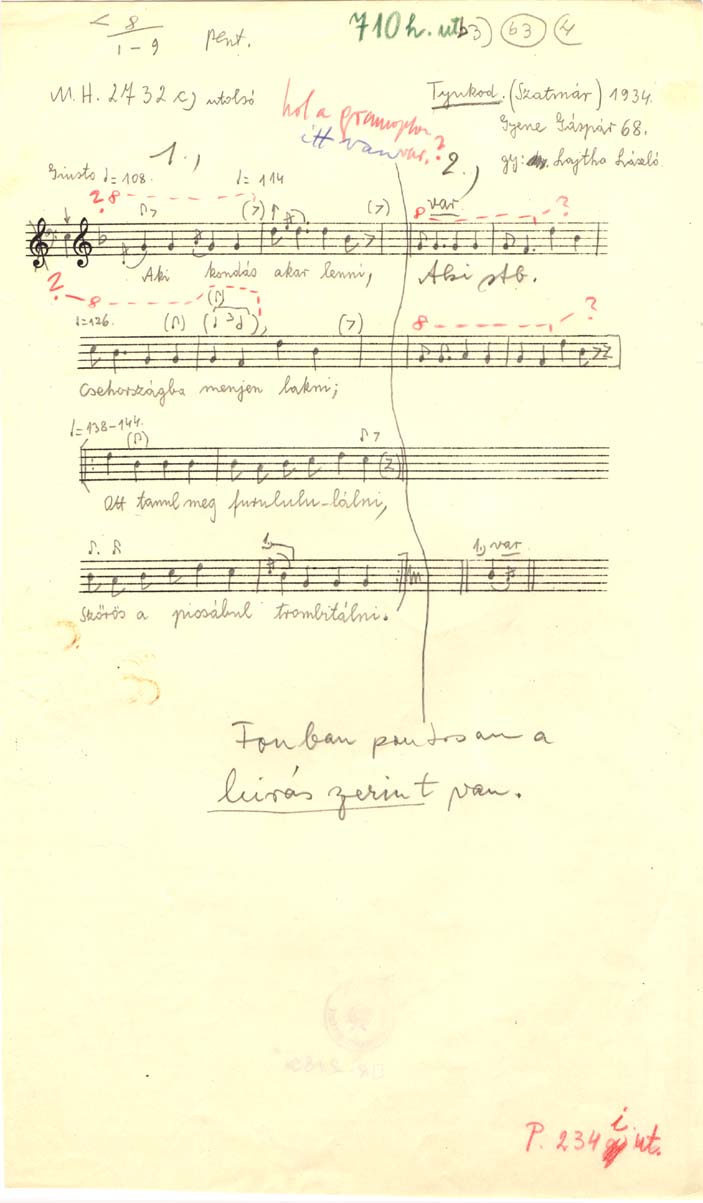 < 8
1-9 pent. 710 h. ut. b3) b3 4
M.H. 2732 c) utolsó
hol a gramophon
itt van var. ?
Tyukod. (Szatmár) 1934.
Gyene Gáspár 68.
gy: Lajtha László
1., 2.,
Giusto ♩= 108. ♩= 114
? 8 8 var ?
Aki kondás akar lenni, Aki stb.
? 8 8 ?
♩=126. 3
Csehországba menjen lakni;
♩= 138-144.
Ott tanul meg furululu-lálni,
1, 1, var
Szőrös a picsábul trombitálni.
Fonban pontosan a
leirás zerint van.
P. 234 i ut.